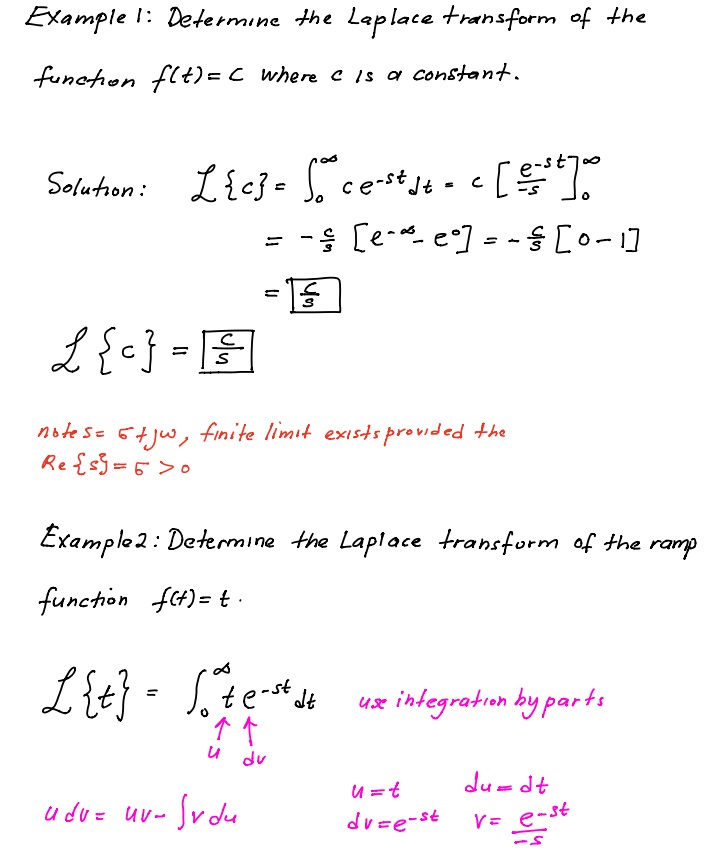 Example 1: Determine the Laplace transform of the
function f(t) = c where c is a constant.
Solution: ℒ{c} = ∫₀^∞ c e^-st dt = c [e^-st/-s]₀^∞
= -c/s [e^-∞ - e^0] = -c/s [0-1]
= c/s
ℒ{c} = c/s
note s = σ+jω, finite limit exists provided the
Re{s} = σ > 0
Example 2: Determine the Laplace transform of the ramp
function f(t) = t.
ℒ{t} = ∫₀^∞ t e^-st dt use integration by parts
u dv
u=t du=dt
u dv = uv - ∫v du
dv = e^-st v = e^-st/-s